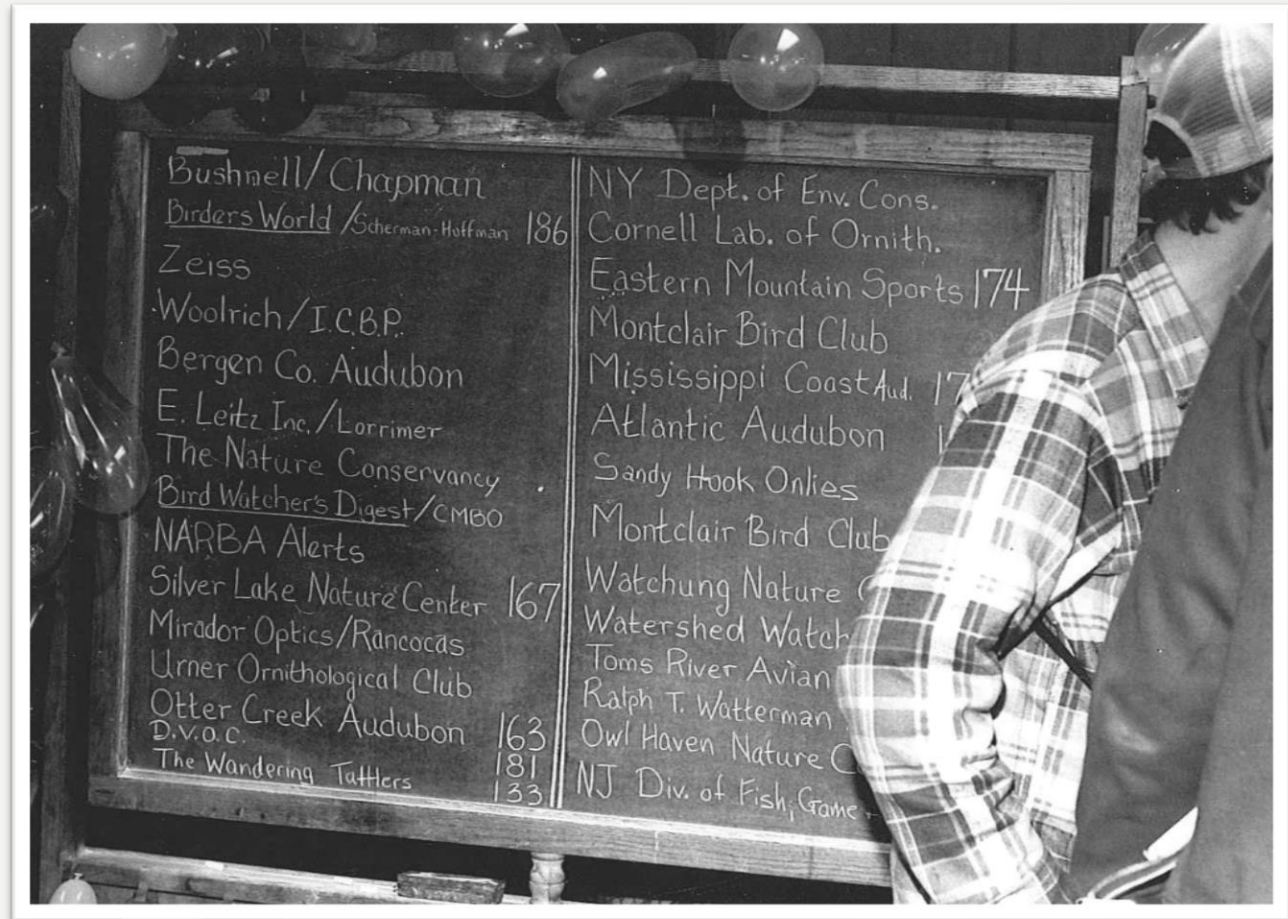 Bushnell/Chapman
Birders World/Scherman-Hoffman 186
Zeiss
Woolrich/I.C.B.P.
Bergen Co. Audubon
E. Leitz Inc./Lorrimer
The Nature Conservancy
Bird Watcher's Digest/CMBO
NARBA Alerts
Silver Lake Nature Center 167
Mirador Optics/Rancocas
Urner Ornithological Club
Otter Creek Audubon 163
D.V.O.C. 181
The Wandering Tattlers 133
NY Dept. of Env. Cons.
Cornell Lab. of Ornith.
Eastern Mountain Sports 174
Montclair Bird Club
Mississippi Coast Aud. 17
Atlantic Audubon 1
Sandy Hook Onlies
Montclair Bird Club
Watchung Nature C
Watershed Watch
Toms River Avian
Ralph T. Watterman
Owl Haven Nature C
NJ Div. of Fish, Game